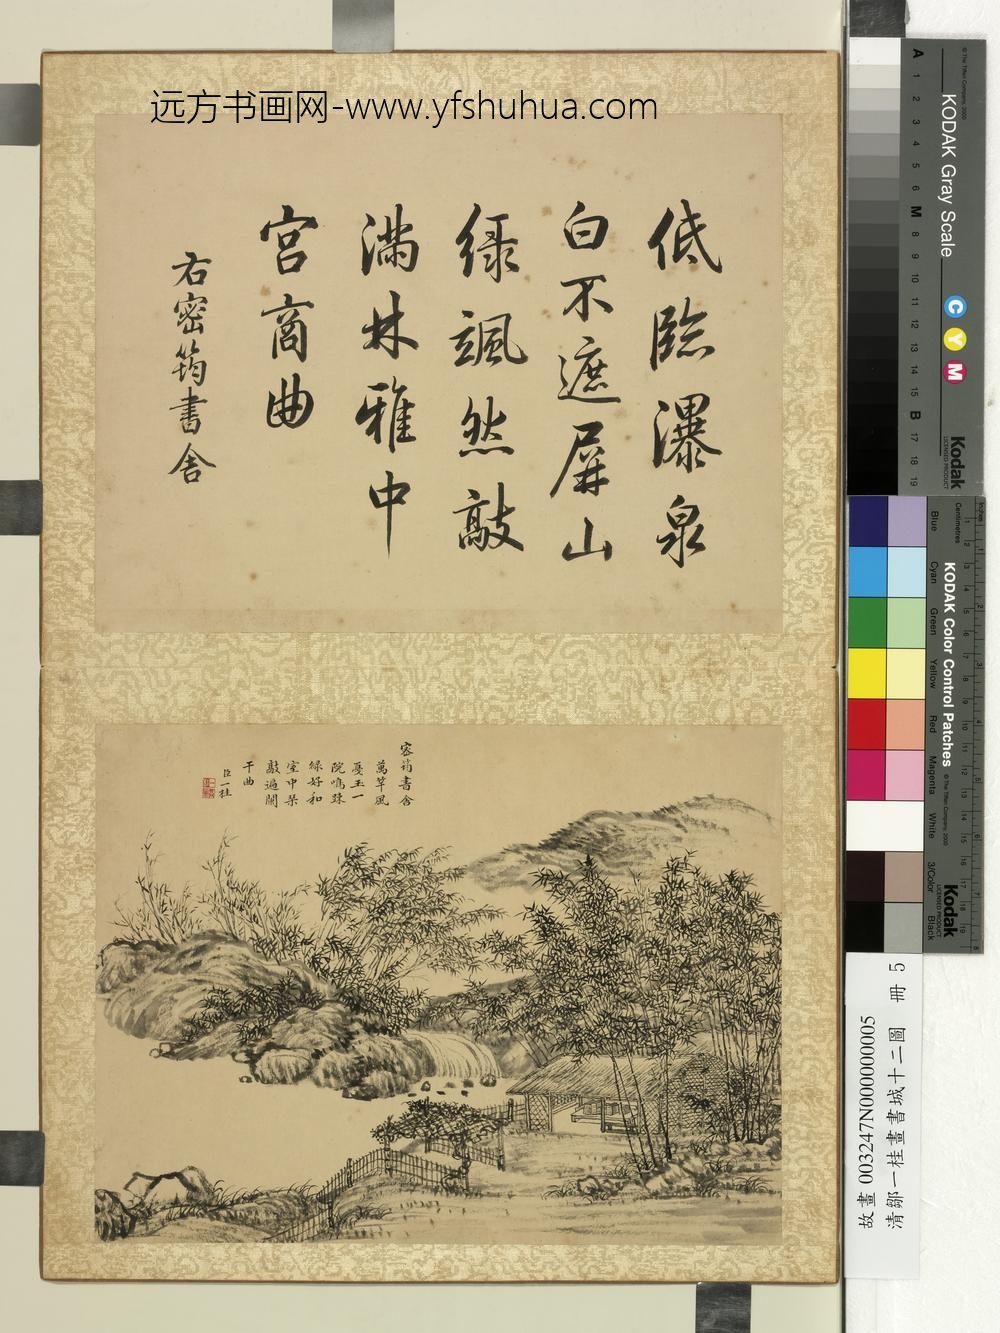 远方书画网-www.yfshuhua.com
低臨瀑泉
白不遮屏山
綠颯然敲
滿林雅中
宮商曲
右密筠書舍
密筠書舍
萬竿風
戛玉一
院鳴珠
綠好和
室中琹
敲遍闌
干曲
臣一桂
KODAK Gray Scale
© The Tiffen Company, 2000
A 1 2 3 4 5 6 M 8 9 10 11 12 13 14 15 B 17 18 19
C Y M
Kodak
LICENSED PRODUCT
KODAK Color Control Patches
© The Tiffen Company, 2000
Inches
Centimetres
Blue
Cyan
Green
Yellow
Red
Magenta
White
3/Color
Black
Kodak
LICENSED PRODUCT
故畫 003247N000000005
清鄒一桂畫書城十二圖 冊 5